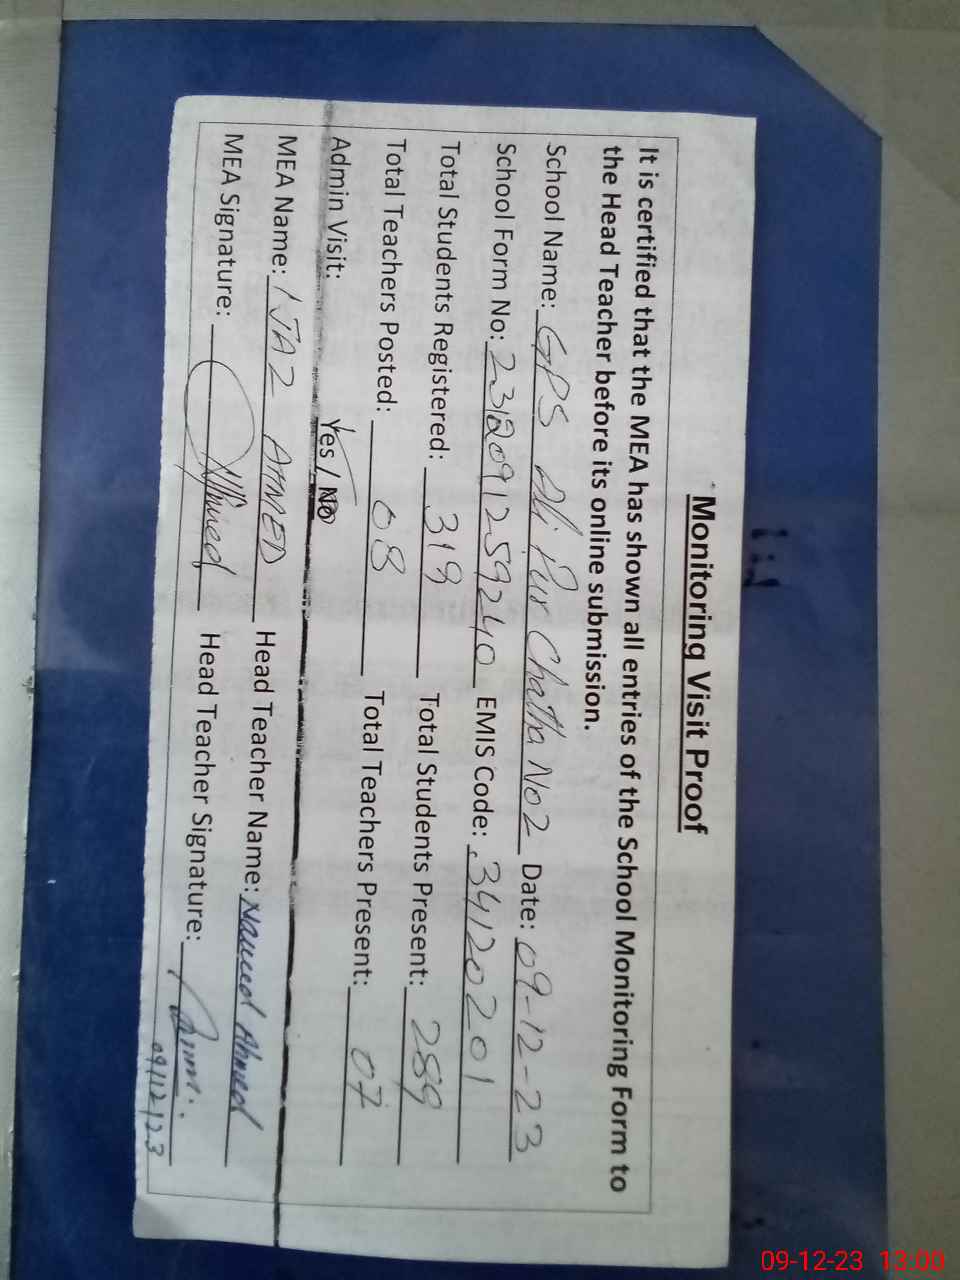 Monitoring Visit Proof
It is certified that the MEA has shown all entries of the School Monitoring Form to
the Head Teacher before its online submission.
School Name: GPS Ali Pur Chatha No2 Date: 09-12-23
School Form No: 2312091259240 EMIS Code: 34120201
Total Students Registered: 319 Total Students Present: 289
Total Teachers Posted: 08 Total Teachers Present: 07
Admin Visit: Yes / No
MEA Name: IJAZ AHMED Head Teacher Name: Naveed Ahmed
MEA Signature: Head Teacher Signature:
09/12/23
09-12-23 13:00